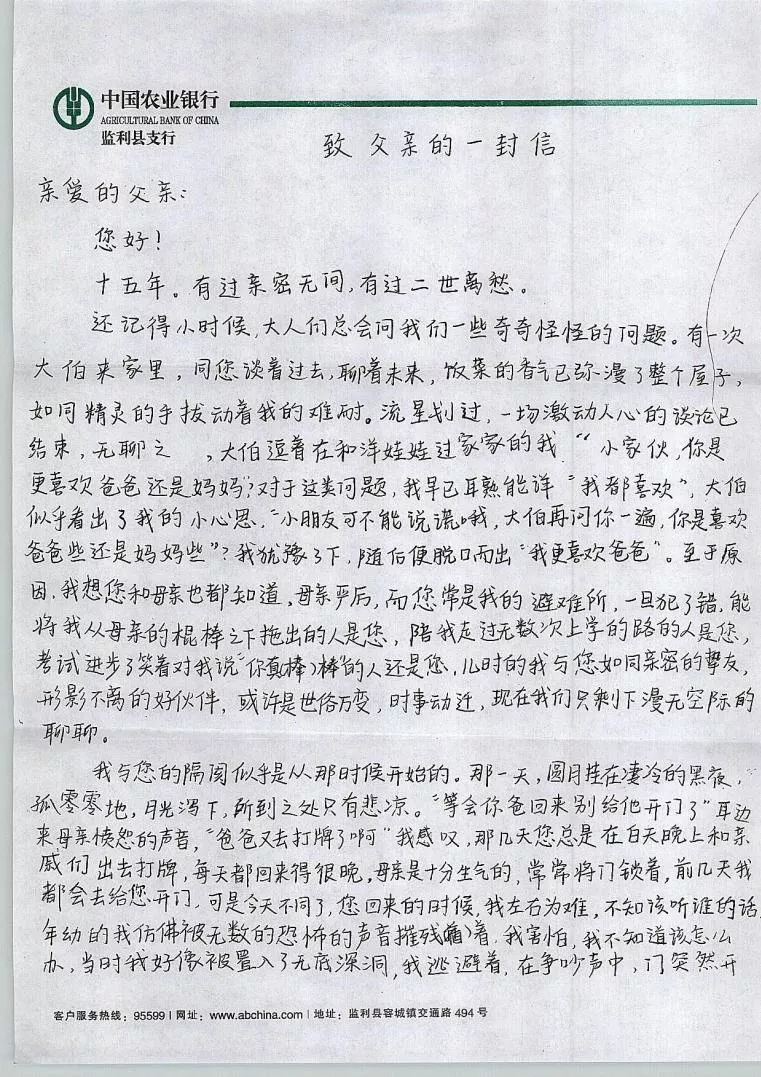 中国农业银行
AGRICULTURAL BANK OF CHINA
监利县支行
致父亲的一封信
亲爱的父亲：
您好！
十五年。有过亲密无间，有过二世离愁。
还记得小时候，大人们总会问我们一些奇奇怪怪的问题。有一次
大伯来家里，同您谈着过去，聊着未来，饭菜的香气已弥漫了整个屋子，
如同精灵的手拔动着我的难耐。流星划过，一场激动人心的谈论已
结束，无聊之，大伯逗着在和洋娃娃过家家的我“小家伙，你是
更喜欢爸爸还是妈妈”？对于这类问题，我早已耳熟能详“我都喜欢”，大伯
似乎看出了我的小心思，“小朋友可不能说谎哦，大伯再问你一遍，你是喜欢
爸爸些还是妈妈些”？我犹豫了下，随后便脱口而出“我更喜欢爸爸”。至于原
因，我想您和母亲也都知道，母亲严厉，而您常是我的避难所，一旦犯了错，能
将我从母亲的棍棒之下拖出的人是您，陪我走过无数次上学的路的人是您，
考试进步了笑着对我说“你真棒”的人还是您，儿时的我与您如同亲密的挚友，
形影不离的好伙伴，或许是世俗万变，时事动迁，现在我们只剩下漫无空际的
聊聊。
我与您的隔阂似乎是从那时候开始的。那一天，圆月挂在凄冷的黑夜，
孤零零地，月光泻下，所到之处只有悲凉。“等会你爸回来别给他开门了”耳边
来母亲愤怨的声音，“爸爸又去打牌了啊”我感叹，那几天您总是在白天晚上和亲
戚们出去打牌，每天都回来得很晚，母亲是十分生气的，常常将门锁着，前几天我
都会去给您开门，可是今天不同了，您回来的时候，我左右为难，不知该听谁的话，
年幼的我仿佛被无数的恐怖的声音摧残着，我害怕，我不知道该怎么
办，当时我好像被置入了无底深洞，我逃避着，在争吵声中，门突然开
客户服务热线：95599 | 网址：www.abchina.com | 地址：监利县容城镇交通路 494 号